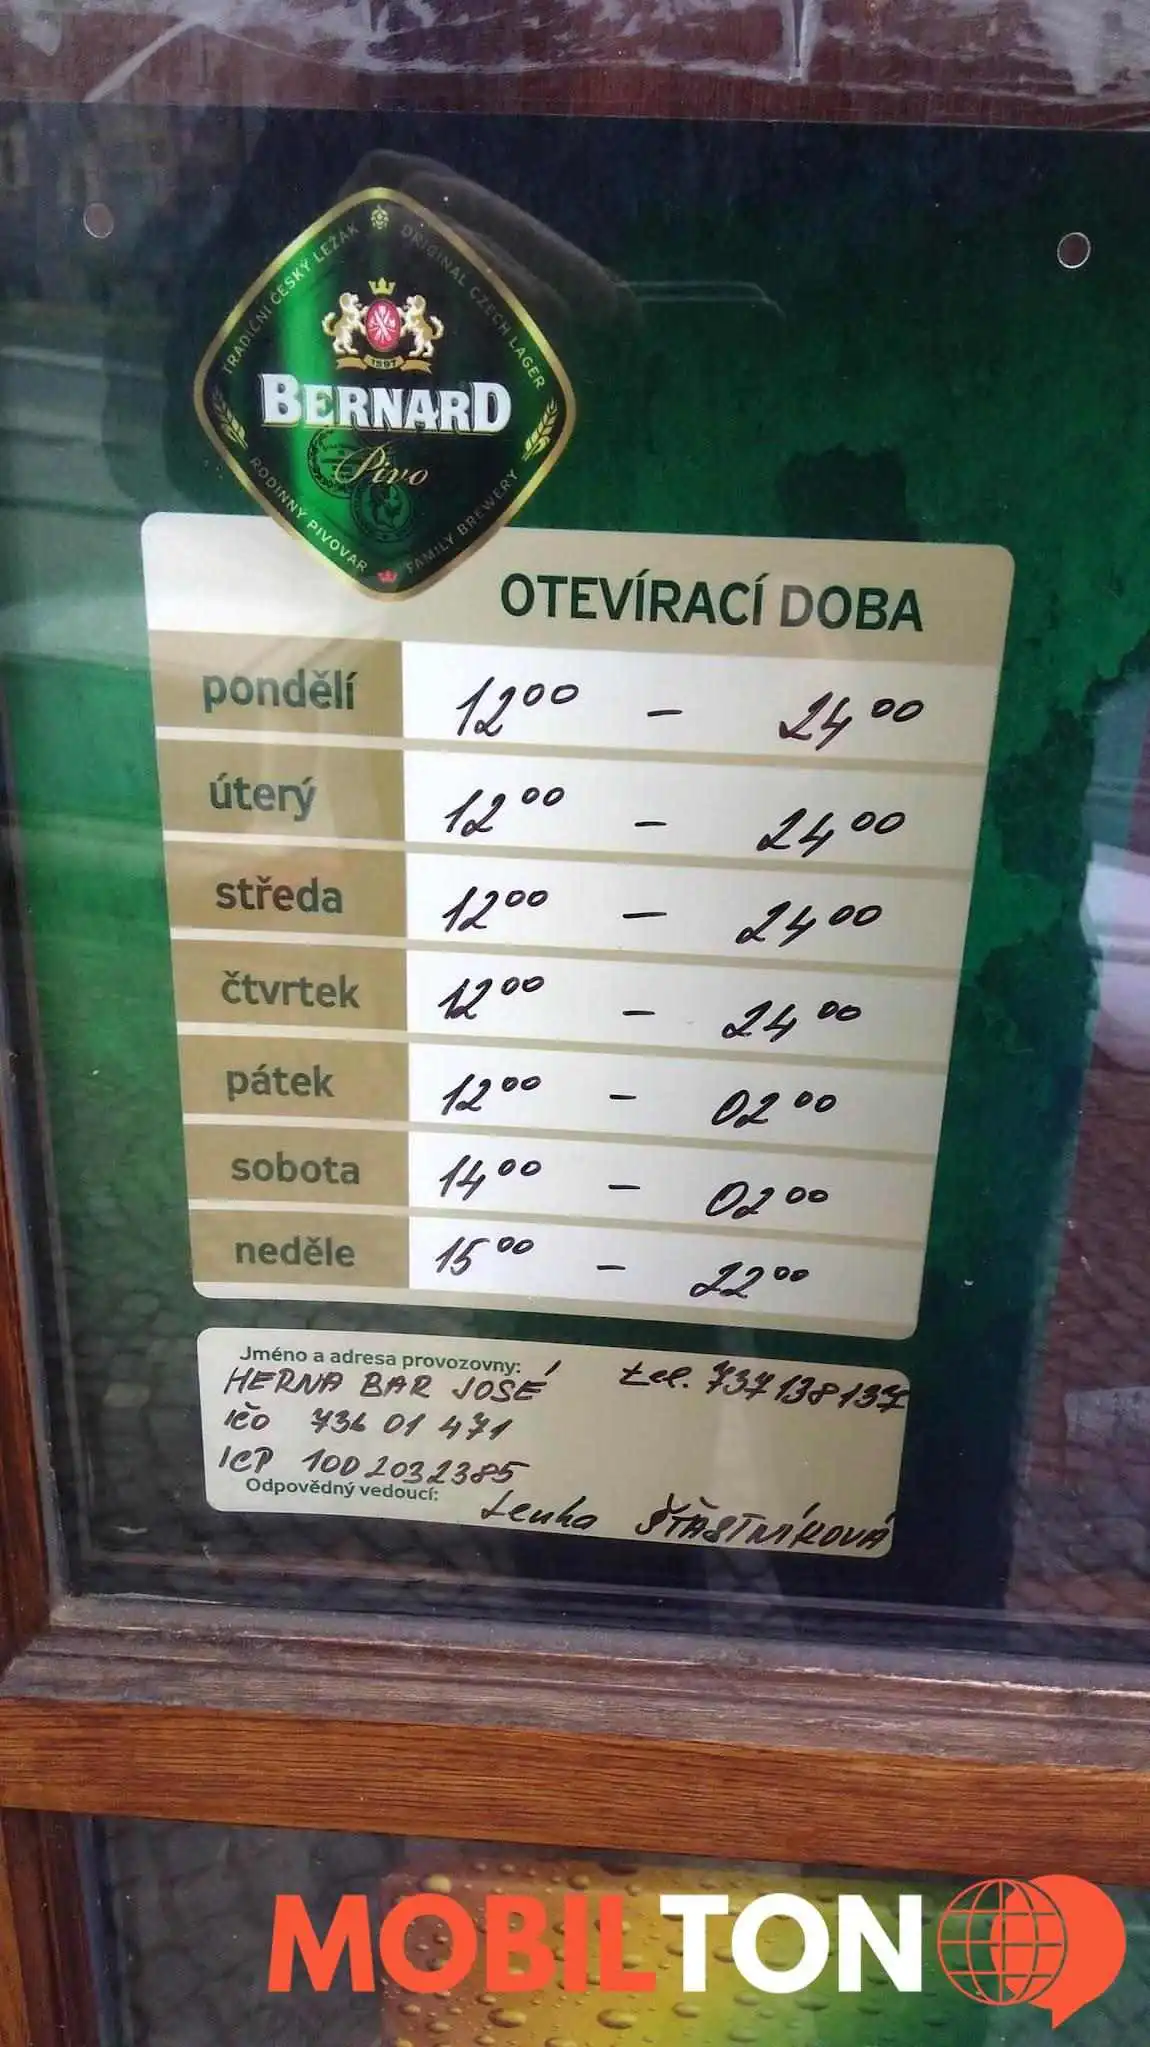 TRADIČNÍ ČESKÝ LEŽÁK
ORIGINAL CZECH LAGER
1597
BERNARD
Pivo
RODINNÝ PIVOVAR
FAMILY BREWERY
OTEVÍRACÍ DOBA
pondělí 12⁰⁰ - 24⁰⁰
úterý 12⁰⁰ - 24⁰⁰
středa 12⁰⁰ - 24⁰⁰
čtvrtek 12⁰⁰ - 24⁰⁰
pátek 12⁰⁰ - 02⁰⁰
sobota 14⁰⁰ - 02⁰⁰
neděle 15⁰⁰ - 22⁰⁰
Jméno a adresa provozovny:
HERNA BAR JOSÉ tel. 737138137
IČO 736 01 471
ICP 1002032385
Odpovědný vedoucí: Lenka ŠŤASTNÍKOVÁ
MOBILTON